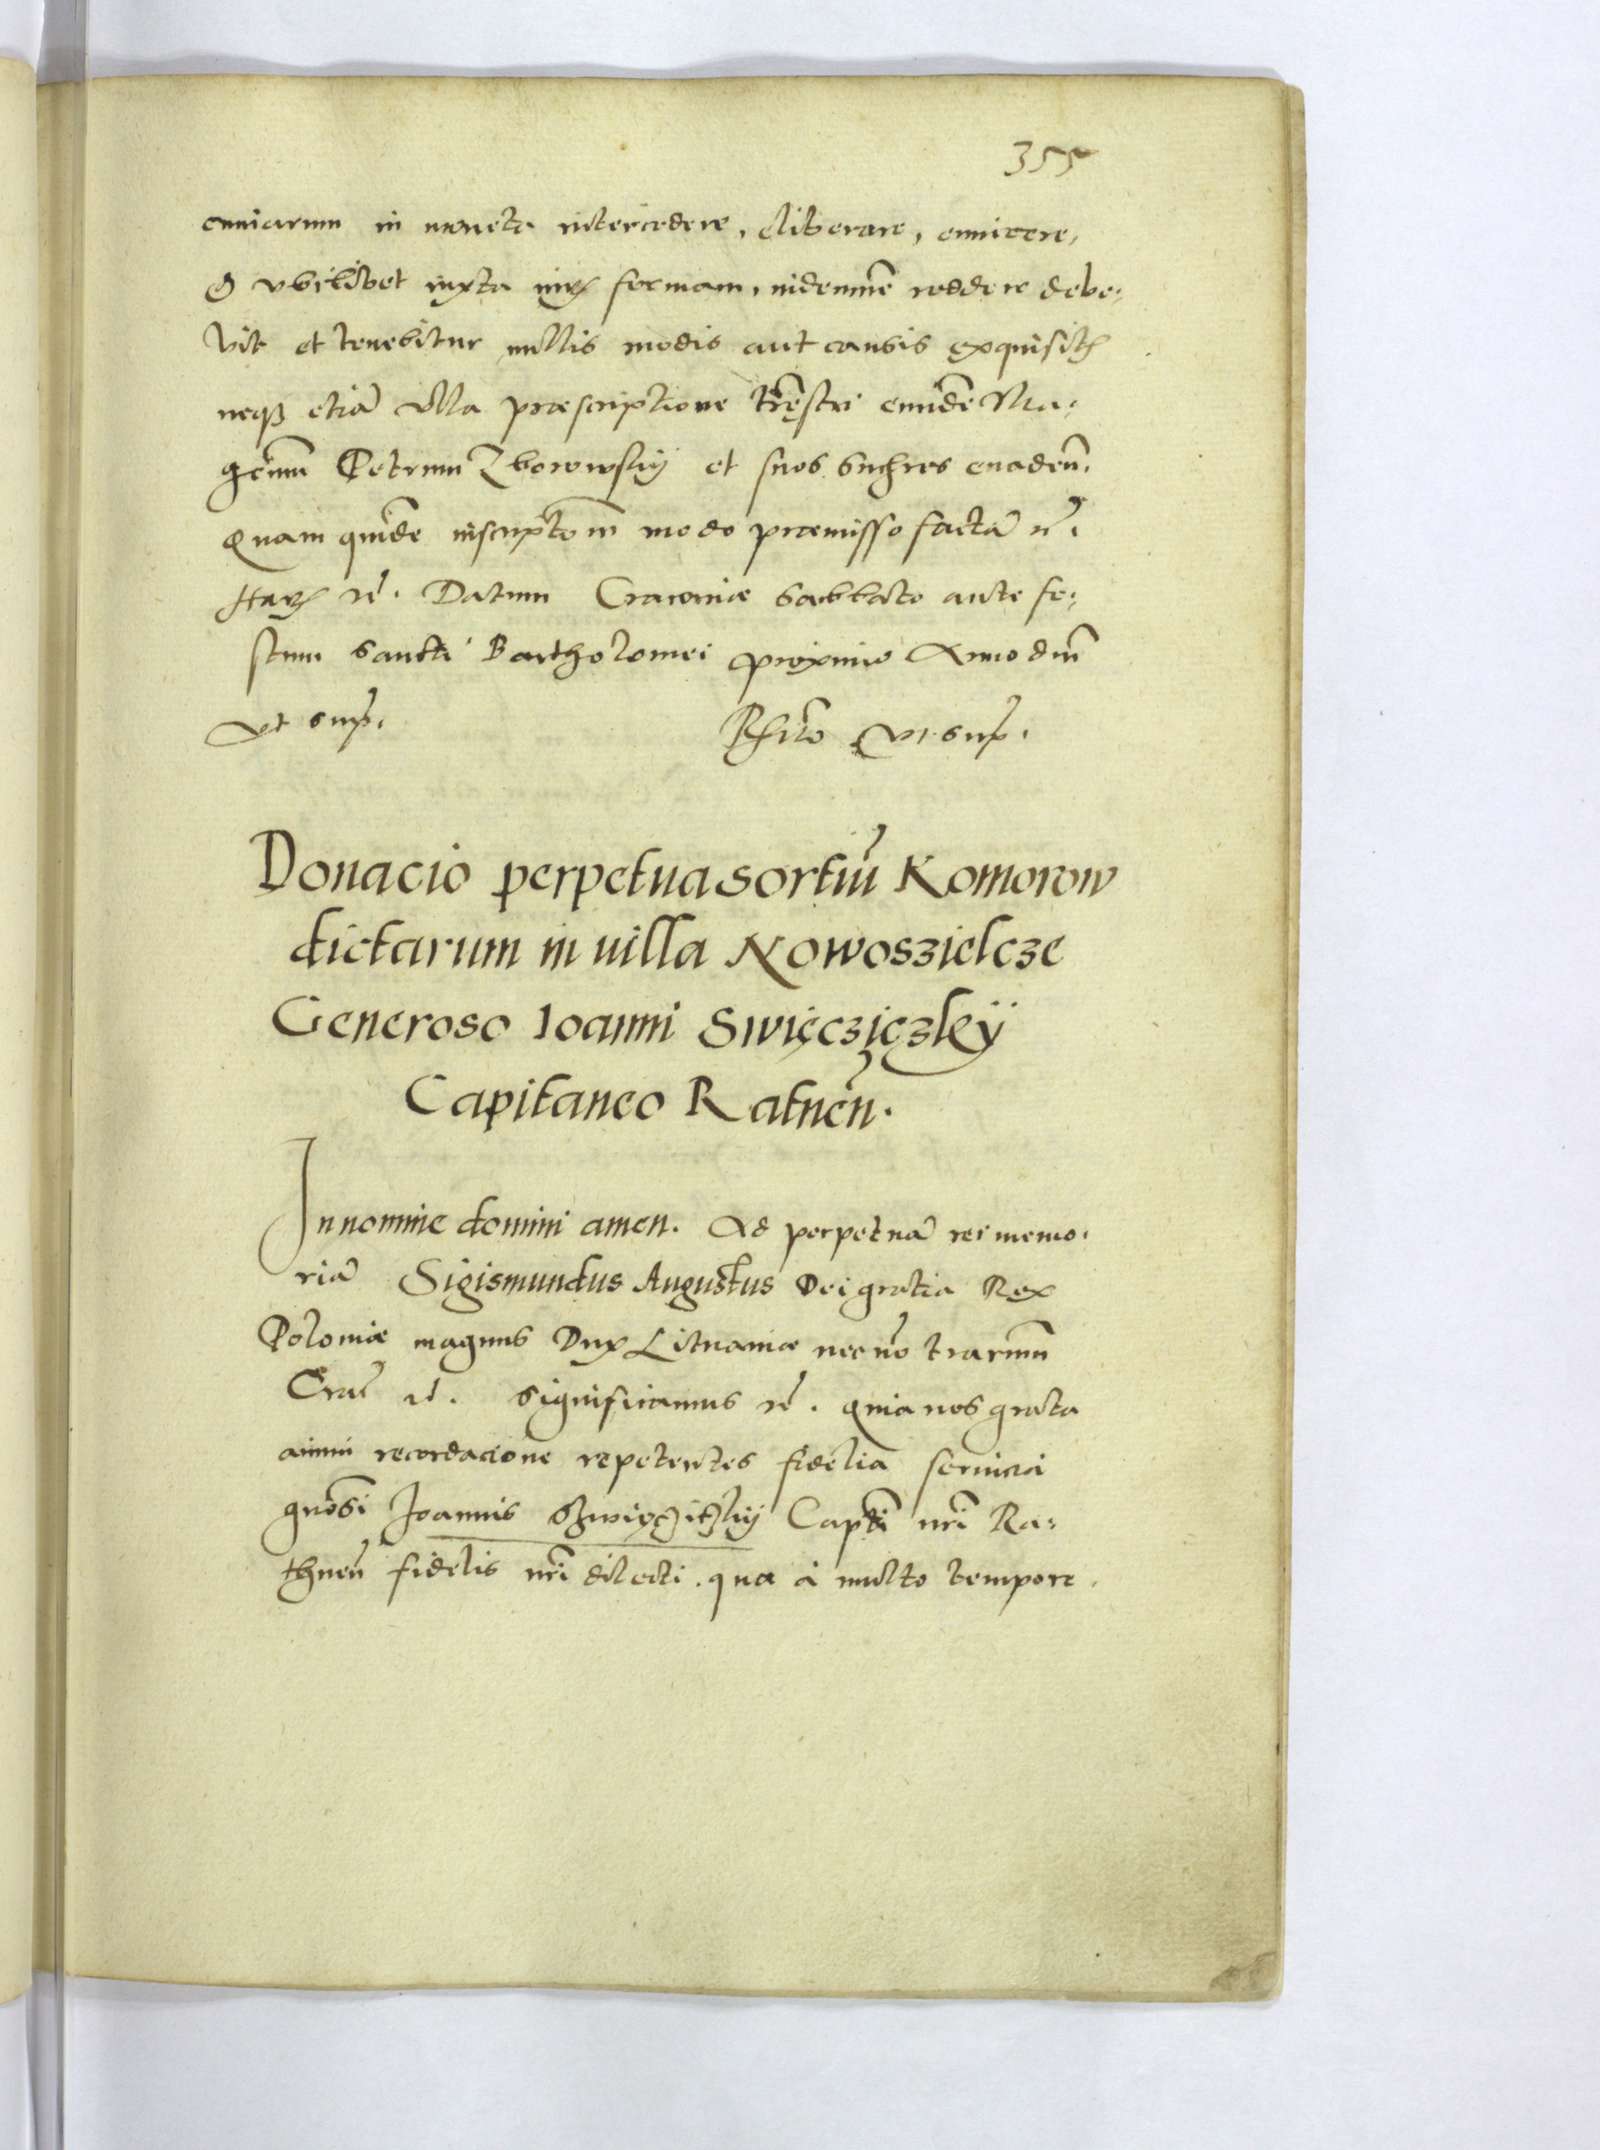 355
cuniarum in moneta intercedere, eliberare, euincere,
& vbilibet iuxta iurꝫ formam, indemnẽ reddere debe:
bit et tenebitur nullis modis aut causis exquisitꝫ
neqꝫ etiã vlla præscriptione trẽstri eundẽ Ma:
gcum̃ Petrum Zborowskÿ et suos succres euadeñ.
Quam quidẽ inscriptõem modo præmisso factã rc̃.
Harꝫ rc̃. Datum Cracouiæ Sabbato ante fe:
stum Sancti Bartholomei proximo Anno dm̃
Vt sup̃.
Rˢitõ vt sup̃.
Donacio perpetua sortiũ Komorow
dictarum in uilla Nowoszielcze
Generoso Ioanni Swięczięzkÿ
Capitaneo Ratneñ.
In nomine domini amen. Ad perpetuã rei memo:
riã Sigismundus Augustus Dei gratia Rex
Poloniæ magnus Dux Lituaniæ necnõ trarum̃
Crac̃ rc̃. Significamus rc̃. quia nos grata
animi recordacione repetentes fidelia seruicia
gnõsi Joannis Szwięczitzkÿ Captĩ nrĩ Ra:
thneñ fidelis nrĩ dilecti. quæ à multo tempore